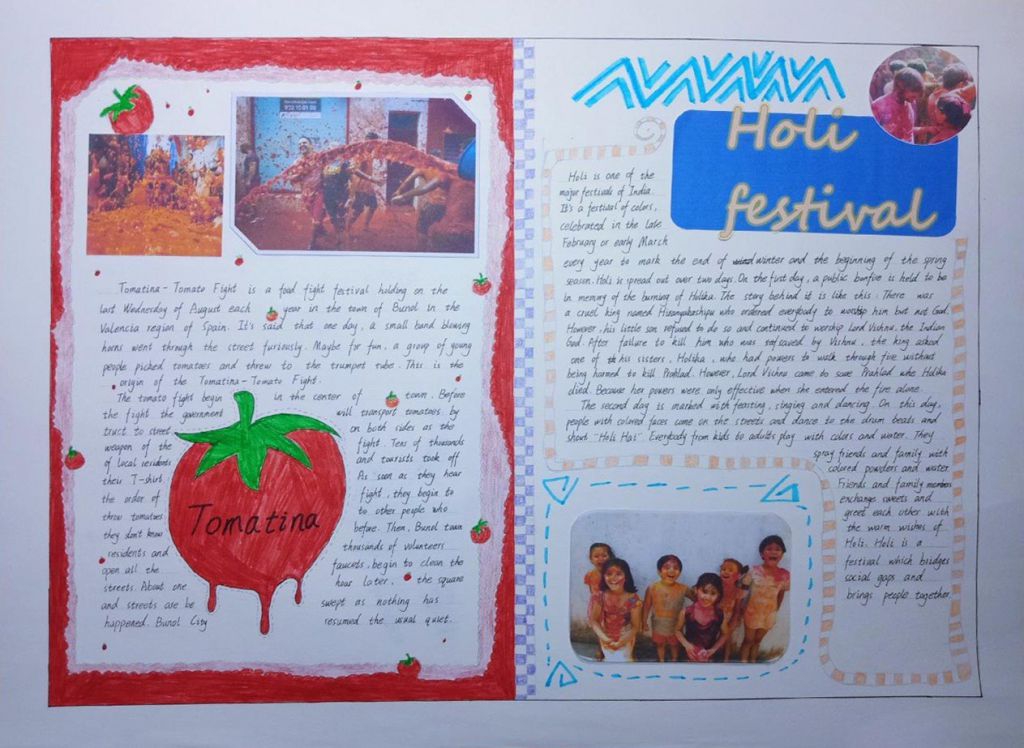 Tomatina - Tomato Fight is a food fight festival holding on the
last Wednesday of August each year in the town of Bunol in the
Valencia region of Spain. It's said that one day, a small band blowing
horns went through the street furiously. Maybe for fun, a group of young
people picked tomatoes and threw to the trumpet tube. This is the
origin of the Tomatina-Tomato Fight.
The tomato fight begin in the center of town. Before
the fight the government will transport tomatoes by
trust to street on both sides as the
weapon of the fight. Tens of thousands
of local residents and tourists took off
their T-shirt. As soon as they hear
the order of fight, they begin to
throw tomatoes to other people who
they don't know before. Then, Bunol town
residents and thousands of volunteers
open all the faucets, begin to clean the
streets. About one hour later, the square
and streets are be swept as nothing has
happened. Bunol City resumed the usual quiet.
Tomatina
Holi
festival
Holi is one of the
major festivals of India.
It's a festival of colors,
celebrated in the late
February or early March
every year to mark the end of winter and the beginning of the spring
season. Holi is spread out over two days. On the first day, a public bonfire is held to be
in memory of the burning of Holika. The story behind it is like this: There was
a cruel king named Hiranyakashipu who ordered everybody to worship him but not God.
However, his little son refused to do so and continued to worship Lord Vishnu, the Indian
God. After failure to kill him who was saved by Vishnu, the king asked
one of his sisters, Holika, who had powers to walk through fire without
being harmed to kill Prahlad. However, Lord Vishnu came to save Prahlad whe Holika
died. Because her powers were only effective when she entered the fire alone.
The second day is marked with feasting, singing and dancing. On this day,
people with colored faces come on the streets and dance to the drum beats and
shout "Holi Hai". Everybody from kids to adults play with colors and water. They
spray friends and family with
colored powders and water.
Friends and family members
exchange sweets and
greet each other with
the warm wishes of
Holi. Holi is a
festival which bridges
social gaps and
brings people together.